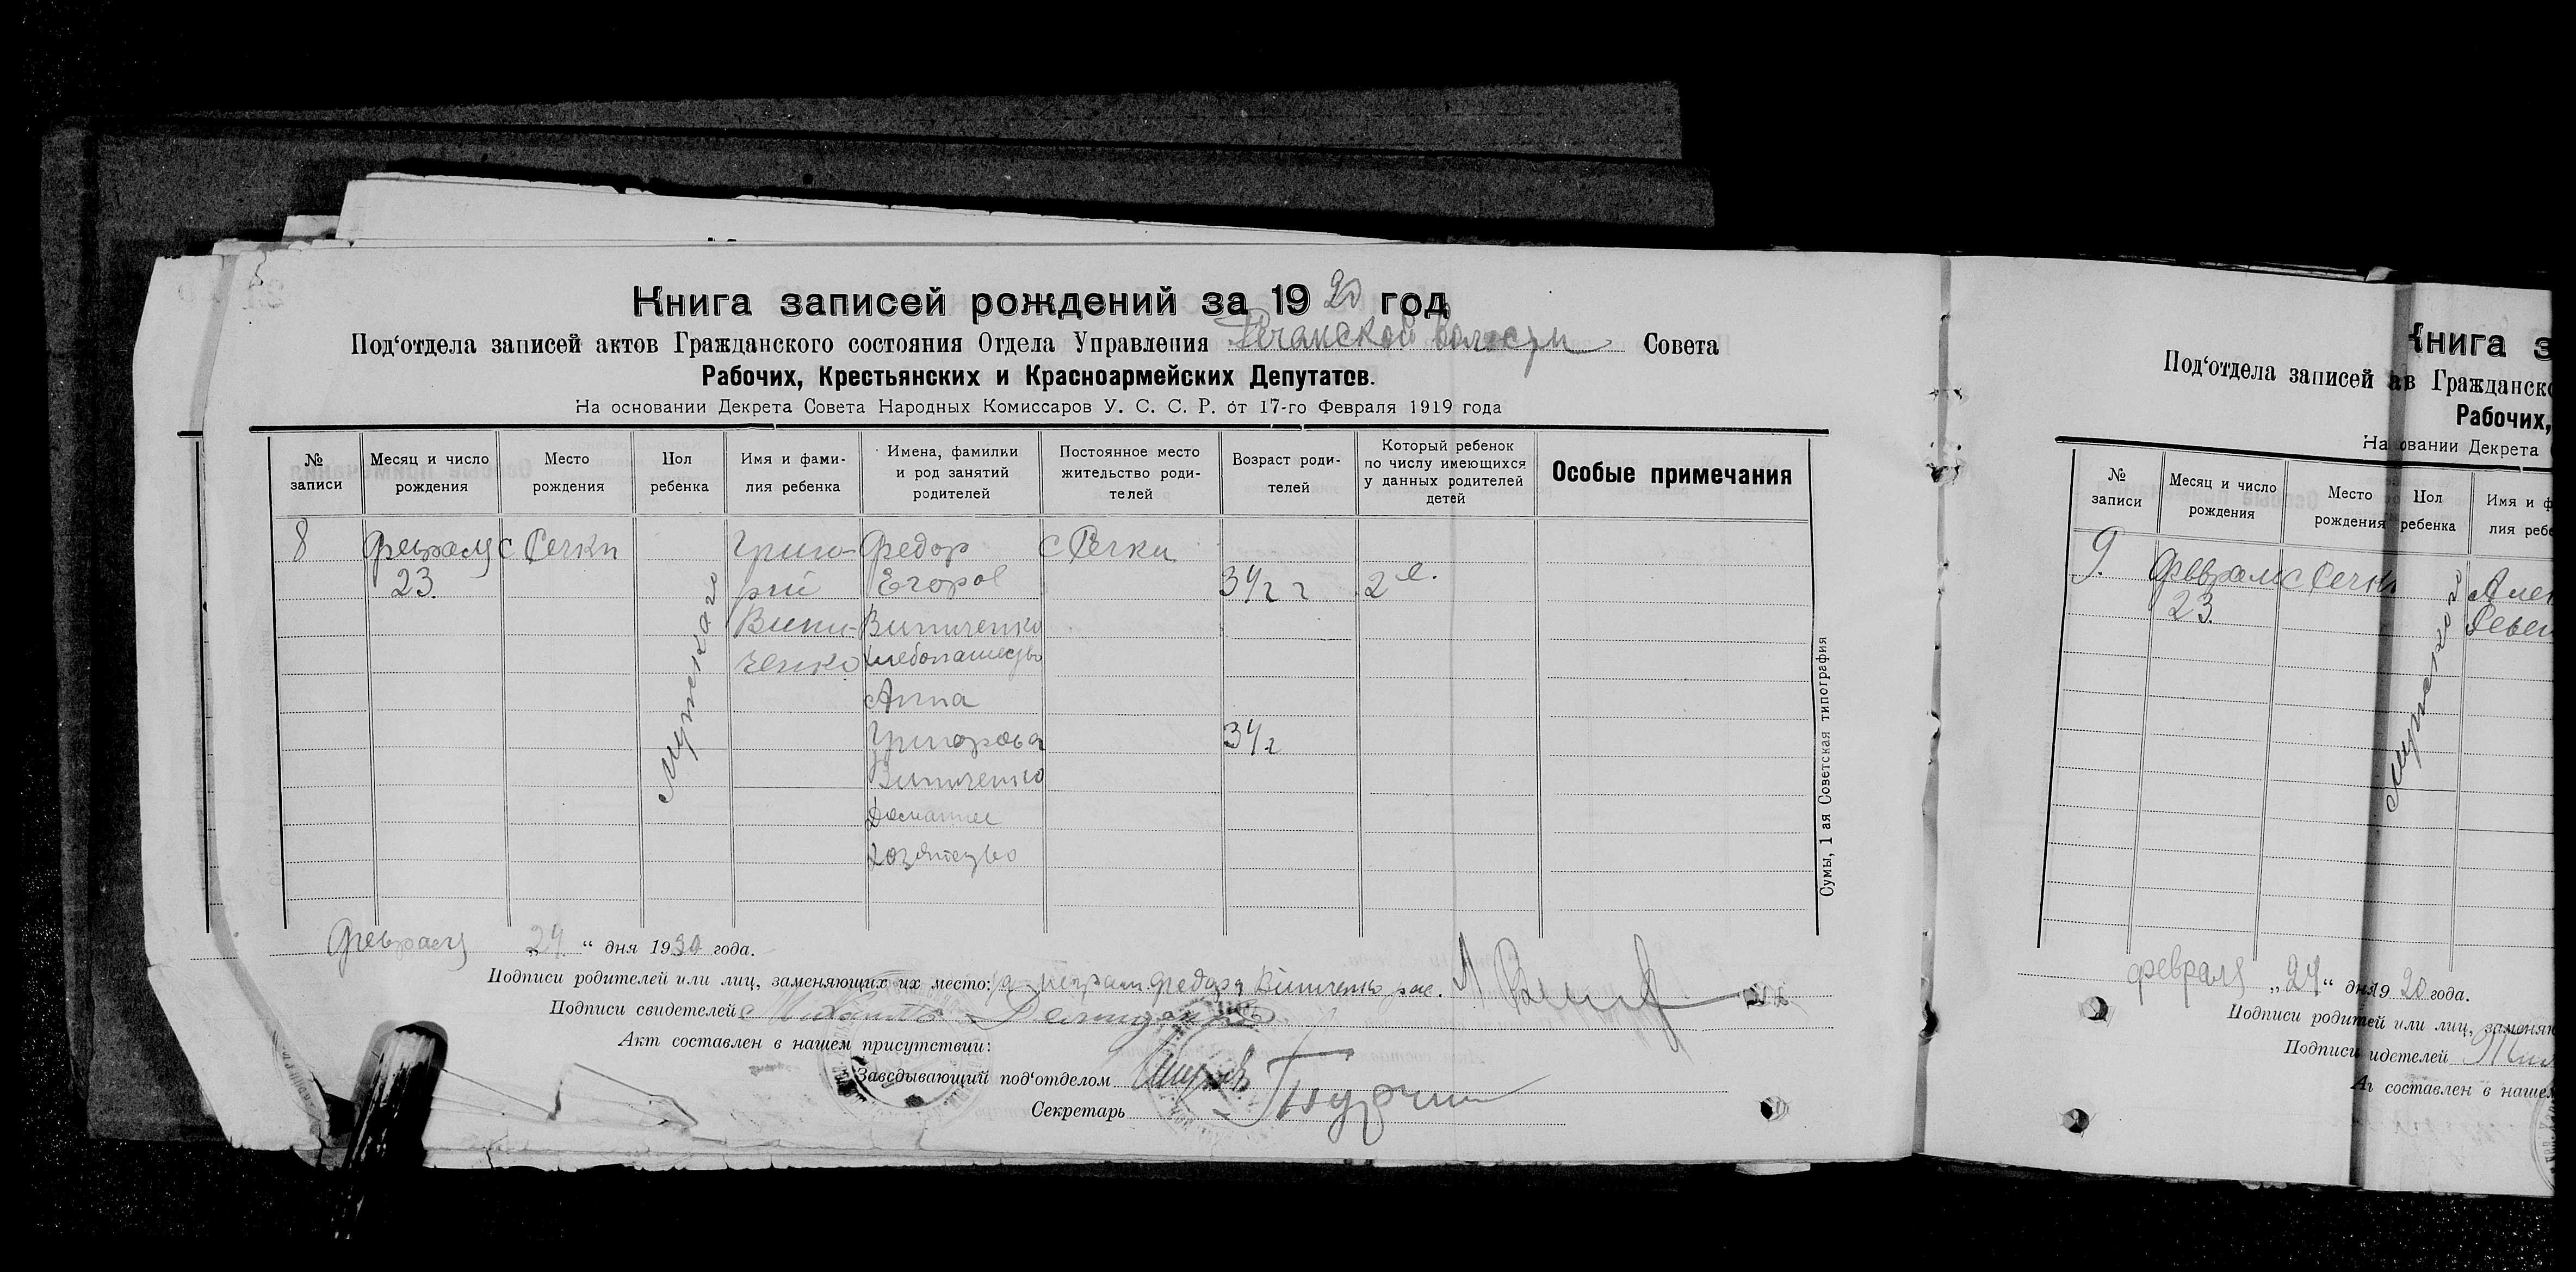 Книга записей рождений за 1920 год
Под‘отдела записей актов Гражданского состояния Отдела Управления Речанской волости Совета
Рабочих, Крестьянских и Красноармейских Депутатов.
На основании Декрета Совета Народных Комиссаров У. С. С. Р. от 17-го Февраля 1919 года
№ записи
Месяц и число рождения
Место рождения
Пол ребенка
Имя и фами-
лия ребенка
Имена, фамилии
и род занятий
родителей
Постоянное место
жительство роди-
телей
Возраст роди-
телей
Который ребенок
по числу имеющихся
у данных родителей
детей
Особые примечания
8
февраля
23.
с Речки
Мужскаго
Григо-
рий
Вини-
ченко
Федор
Егоров
Винниченко
хлебопашество
Анна
Григорьева
Винниченко
Домашнее
хозяйство
с Речки
34 г г
34 г
2 е.
Сумы, 1 ая Советская типография
февраля „24.“ дня 1920 года.
Подписи родителей или лиц, заменяющих их место: за неграм. Федора Винниченко рас.
Подписи свидетелей
Акт составлен в нашем присутствии:
Заведывающий под‘отделом
Секретарь
Книга з
Под‘отдела записей ав Гражданско
Рабочих,
На овании Декрета
№
записи
Месяц и число
рождения
Место
рождения
Пол
ребенка
Имя и ф
лия ребе
9.
февраля
23.
с Речки
Мужского
Алек
февраля „24“ дня 1920 года.
Подписи родителей или лиц, заменяю
Подписи идетелей
Аг составлен в нашем